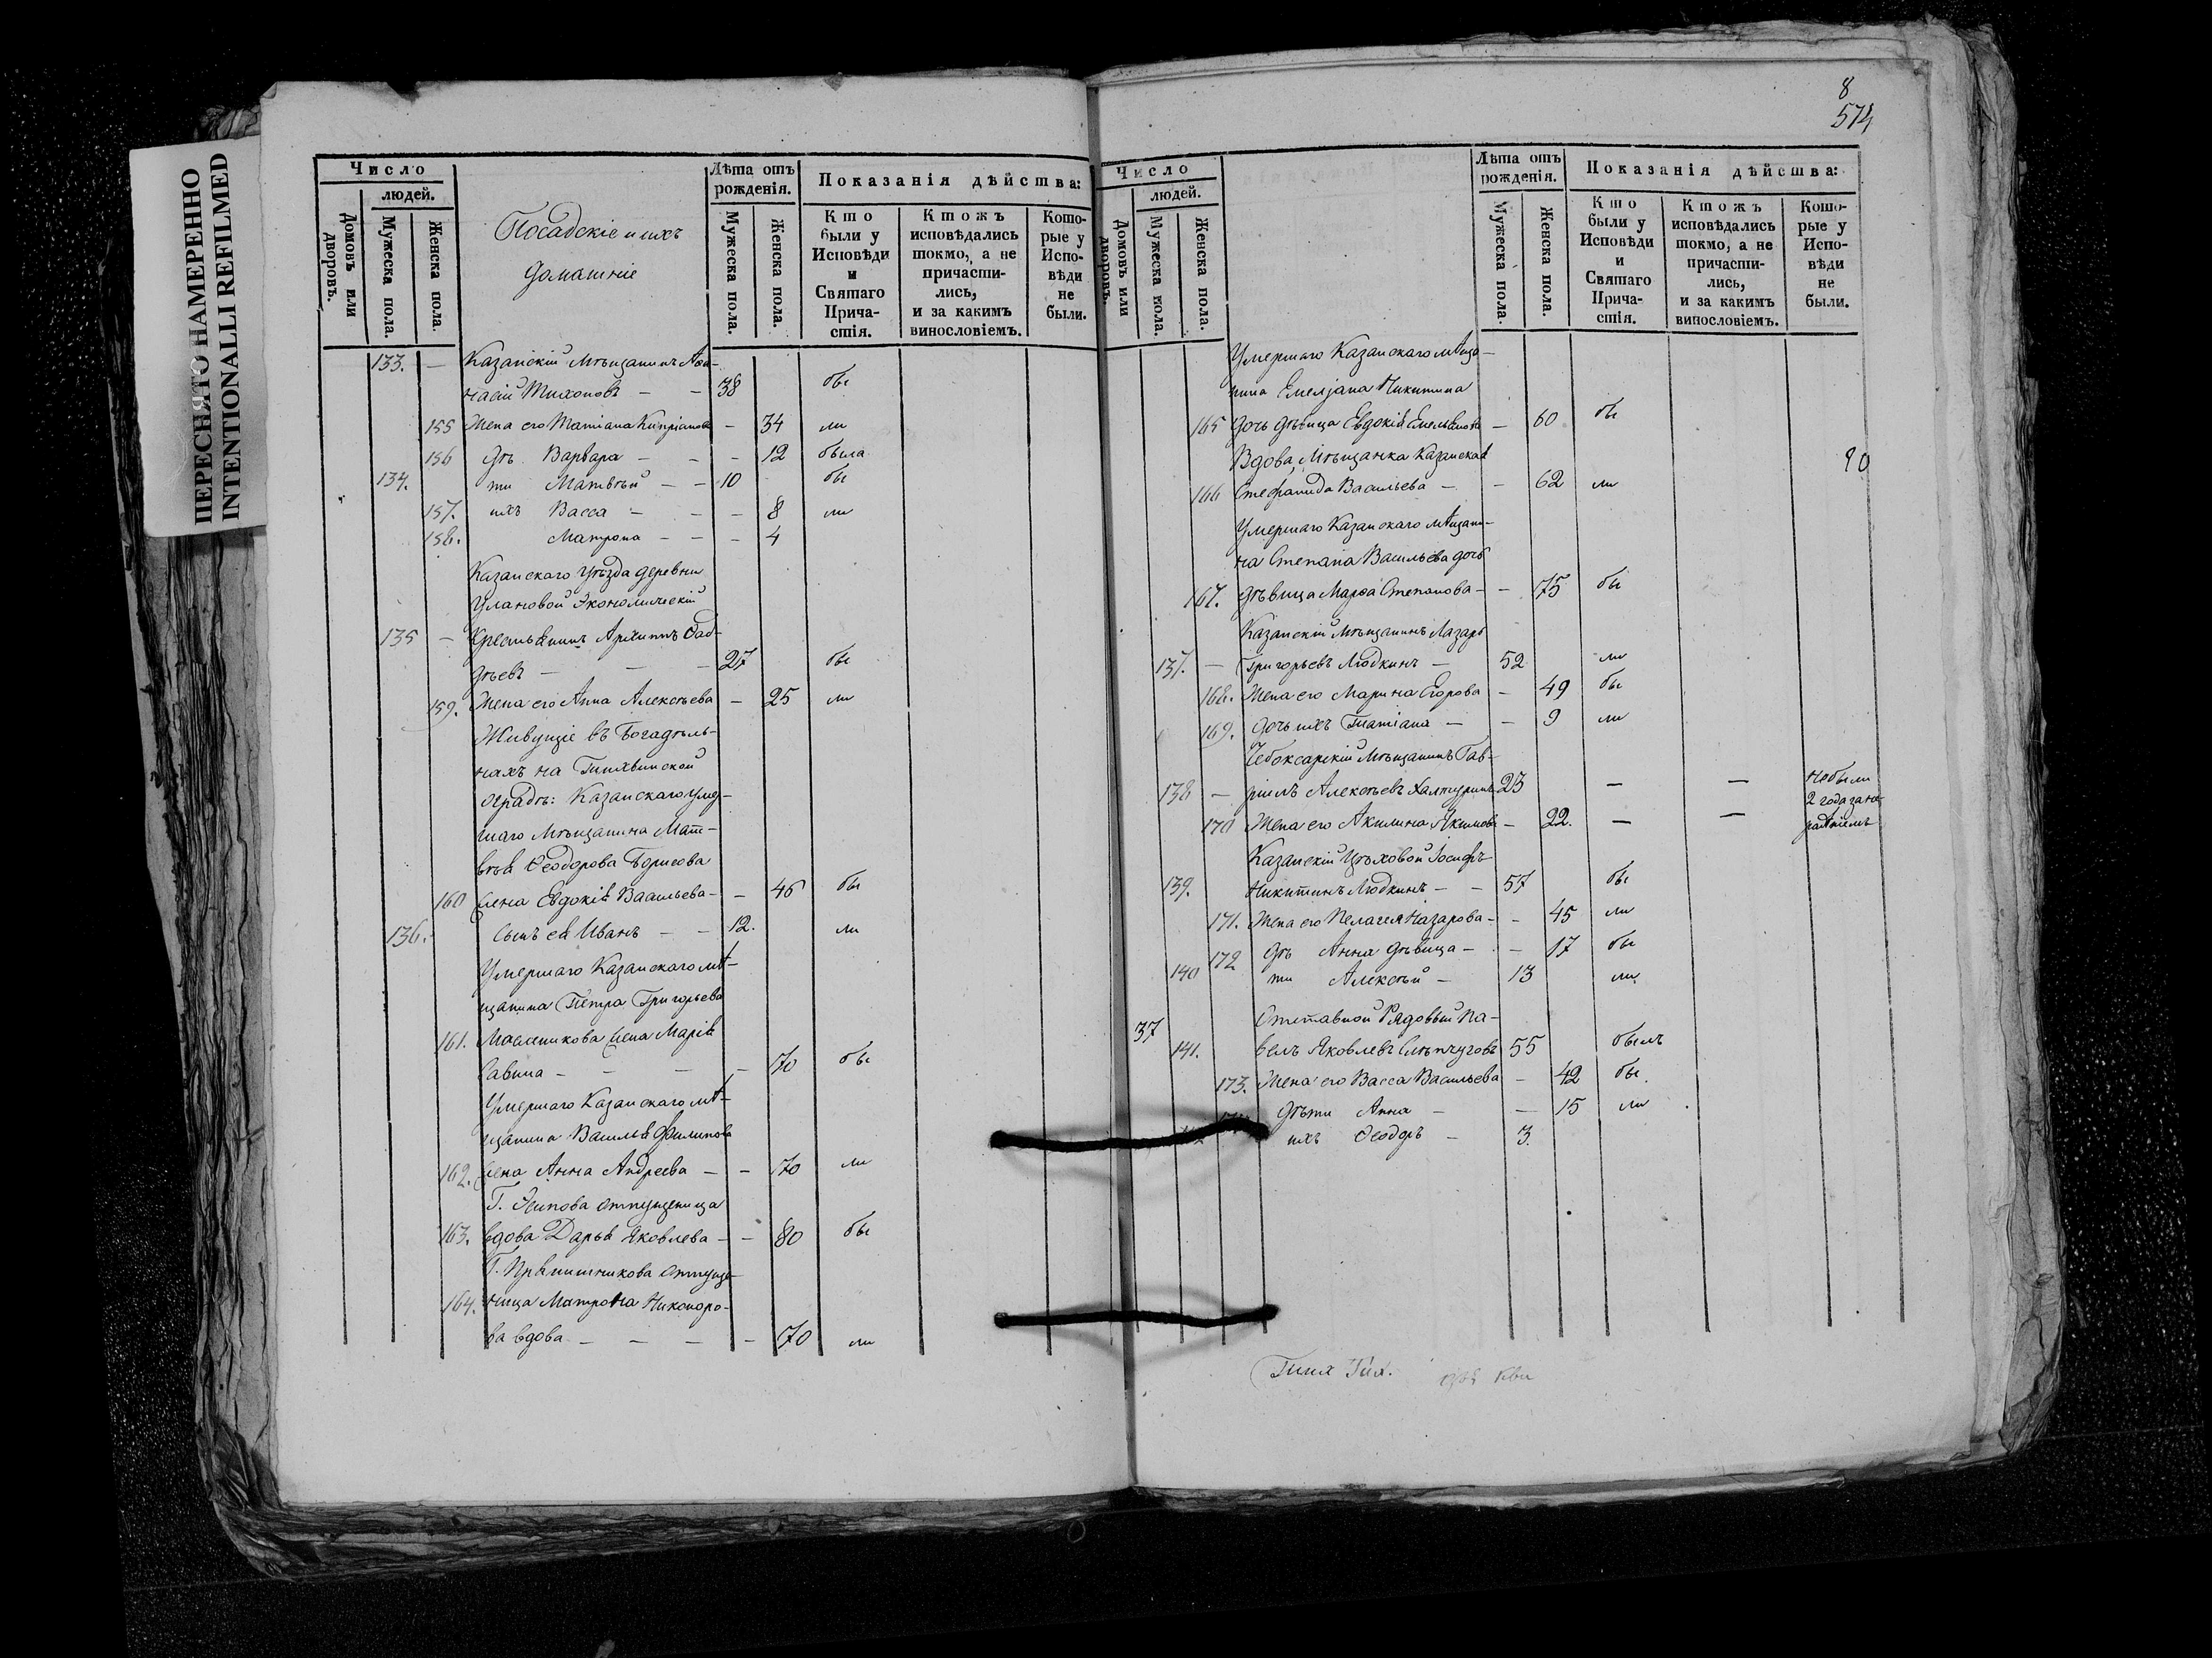 ПЕРЕСНЯТО НАМЕРЕННО
INTENTIONALLI REFILMED
Число
людей.
Домовъ или дворовъ.
Мужеска пола.
Женска пола.
Посадскіе и ихъ
домашніе
Лѣта отъ рожденія.
Мужеска пола.
Женска пола.
Показанія дѣйства:
Кто были у Исповѣди и Святаго Прича-стія.
Ктожъ исповѣдались токмо, а не причасти-лись, и за какимъ винословіемъ.
Кото-рые у Испо-вѣди не были.
133. — Казанскій мѣщанинъ Афа-
насій Тихоновъ — — 38 бы
155 Жена его Татіана Кипріанова — 34 ли
156 дѣ Варвара — — — 12 была
134. ти Матвѣй — — 10 бы
157. ихъ Васса — — — 8 ли
158. Матрона — — — 4
Казанскаго уѣзда деревни
Улановой Экономическій
135 — Крестьянинъ Архиппъ Фад-
дѣевъ — — — 27 бы
159. Жена его Анна Алексѣева — 25 ли
Живущіе въ Богадѣль-
нахъ на Тихвинской
оградѣ: Казанскаго умер-
шаго мѣщанина Мат-
вѣя Ѳеодорова Борисова
160 жена Евдокія Васильева — — 46 бы
136. Сынъ ея Иванъ — — 12. ли
Умершаго Казанскаго мѣ-
щанина Петра Григорьева
161. Масленикова жена Марія
Савина — — — — 70 бы
Умершаго Казанскаго мѣ-
щанина Василья Филипова
162. жена Анна Андреева — — 70 ли
Г. Осипова отпущеница
163. вдова Дарья Яковлева — — 80 бы
Г. Прянишникова отпуще-
164. ница Матрона Никоноро-
ва вдова — — — — 70 ли
8
574
Число
людей.
Домовъ или дворовъ.
Мужеска пола.
Женска пола.
Лѣта отъ рожденія.
Мужеска пола.
Женска пола.
Показанія дѣйства:
Кто были у Исповѣди и Святаго Прича-стія.
Ктожъ исповѣдались токмо, а не причасти-лись, и за какимъ винословіемъ.
Кото-рые у Испо-вѣди не были.
Умершаго Казанскаго мѣща-
нина Емельяна Никитина
165 дочь дѣвица Евдокія Емельянова — 60 бы
Вдова мѣщанка Казанская
166 Стефанида Васильева — — 62 ли
Умершаго Казанскаго мѣщани-
на Степана Васильева дочь
167. дѣвица Марѳа Степанова — — 75 бы
Казанскій мѣщанинъ Лазарь
137. — Григорьевъ Людкинъ — 52 ли
168. Жена его Марина Егорова — 49 бы
169. Дочь ихъ Татіана — — 9 ли
Чебоксарскій мѣщанинъ Гав-
138 — ріилъ Алексѣевъ Халтуринъ 23 — — не были
2 года за не-
170 Жена его Акилина Якимова — 22. — — радѣніемъ
Казанскій Цѣховой Іосифъ
139. Никитинъ Людкинъ — — 57 бы
171. Жена его Пелагея Назарова — — 45 ли
172 дѣ Анна дѣвица — — 17 бы
140 ти Алексѣй — 13 ли
37 Отставной Рядовый Па-
141. велъ Яковлевъ 55 былъ
173. Жена его Васса Васильева — 42 бы
Дѣти Анна — — 15 ли
ихъ Ѳеодоръ — 3.